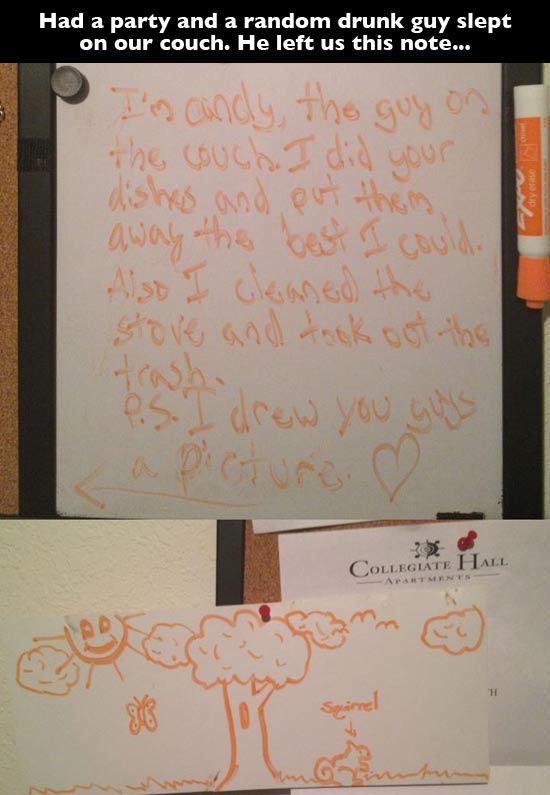 Had a party and a random drunk guy slept
on our couch. He left us this note...
I'm andy, the guy on
the couch. I did your
dishes and put them
away the best I could.
Also I cleaned the
stove and took oot the
trash.
P.S. I drew you guys
a picture.
EXPO
dry erase
chisel
COLLEGIATE HALL
APARTMENTS
H
squirrel